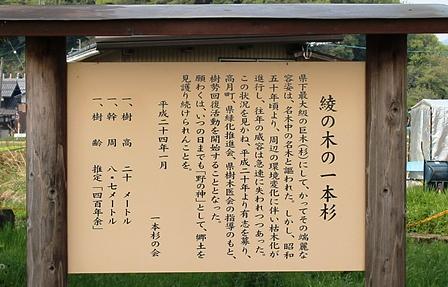 綾の木の一本杉
県下最大級の巨木(杉)にして、かってその端麗な
容姿は、名木中の名木と謳われた。しかし、昭和
五十年頃より、周辺の環境変化に伴い枯木化が
進行し、往年の威容は急速に失われつつあった。
この状況を見かね、平成二十年より有志を募り、
高月町、県緑化推進会、県樹木医会の指導のもと、
樹勢回復活動を開始することとなった。
願わくは、いつの日までも「野の神」として、郷土を
見護り続けられんことを。
平成二十四年一月
一本杉の会
一、樹高 二十メートル
一、幹周 八・七メートル
一、樹齢 推定「四百年余」